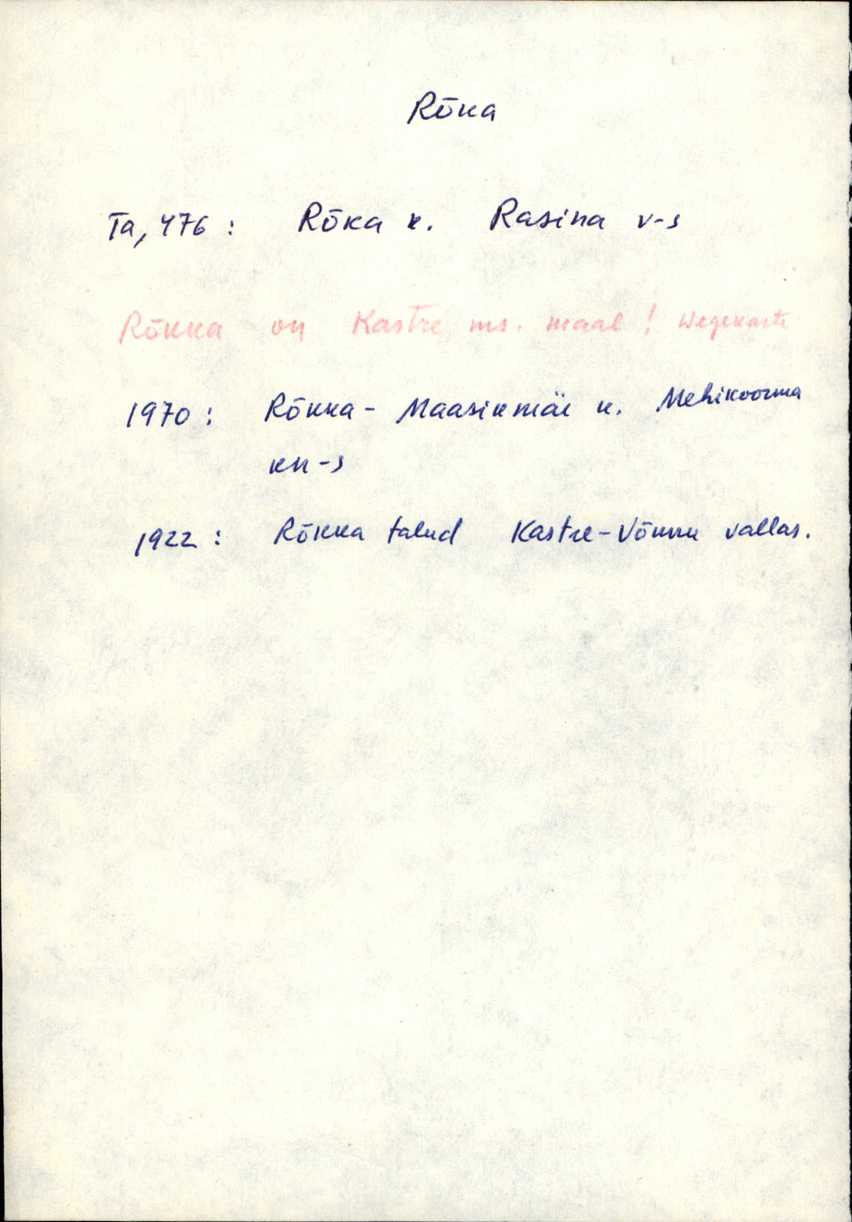 Rõka
Ta, 476: Rõka k. Rasina v-s
Rõkka on Kastre ms. maal! Wegekarte
1970: Rõkka-Maasikmäe k. Mehikoorma
kn-s
1922: Rõkka talud Kastre-Võnnu vallas.